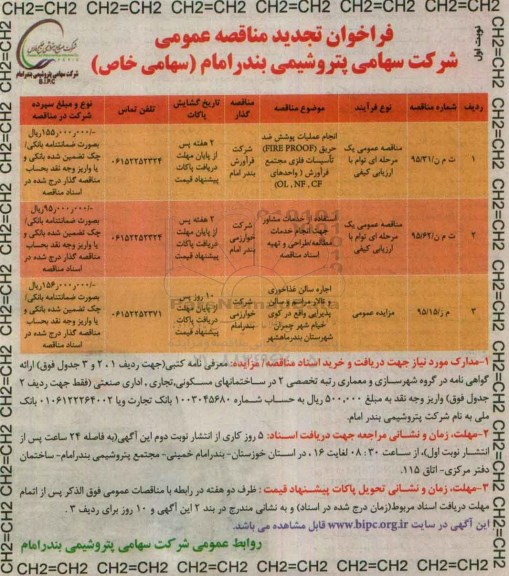 CH2=CH2=CH2=CH2=CH2=CH2=CH2=CH2=CH2=CH2
نوبت اول
فراخوان تجدید مناقصه عمومی
شرکت سهامی پتروشیمی بندرامام (سهامی خاص)
شرکت سهامی پتروشیمی بندرامام
B.I.P.C
ردیف | شماره مناقصه | نوع فرآیند | موضوع مناقصه | مناقصه گذار | تاریخ گشایش پاکات | تلفن تماس | نوع و مبلغ سپرده شرکت در مناقصه
۱ | ت م ن/۹۵/۳۱ | مناقصه عمومی یک مرحله ای توام با ارزیابی کیفی | انجام عملیات پوشش ضد حریق (FIRE PROOF) تأسیسات فلزی مجتمع فرآورش ( واحدهای OL , NF , CF) | شرکت فرآورش بندر امام | ۲ هفته پس از پایان مهلت دریافت پاکات پیشنهاد قیمت | ۰۶۱۵۲۲۵۲۳۲۴ | ۱۵۵,۰۰۰,۰۰۰/-ریال بصورت ضمانتنامه بانکی/ چک تضمین شده بانکی و یا واریز وجه نقد بحساب مناقصه گذار درج شده در اسناد مناقصه
۲ | ت م ن/۹۵/۶۲ | مناقصه عمومی یک مرحله ای توام با ارزیابی کیفی | استفاده از خدمات مشاور جهت انجام خدمات مطالعه/طراحی و تهیه اسناد مناقصه | شرکت خوارزمی بندر امام | ۲ هفته پس از پایان مهلت دریافت پاکات پیشنهاد قیمت | ۰۶۱۵۲۲۵۲۳۲۴ | ۹۵,۰۰۰,۰۰۰/-ریال بصورت ضمانتنامه بانکی/ چک تضمین شده بانکی و یا واریز وجه نقد بحساب مناقصه گذار درج شده در اسناد مناقصه
۳ | م ز/۹۵/۱۵ | مزایده عمومی | اجاره سالن غذاخوری و تالار مراسم و سالن پذیرایی واقع در کوی خیام شهر چمران شهرستان بندرماهشهر | شرکت خوارزمی بندرامام | ۱۰ روز پس از پایان مهلت دریافت پاکات پیشنهاد قیمت | ۰۶۱۵۲۲۵۲۳۷۱ | ۱۵۶,۰۰۰,۰۰۰/-ریال بصورت ضمانتنامه بانکی/ چک تضمین شده بانکی و یا واریز وجه نقد بحساب مناقصه گذار درج شده در اسناد مناقصه
۱-مدارک مورد نیاز جهت دریافت و خرید اسناد مناقصه/ مزایده: معرفی نامه کتبی(جهت ردیف ۱ ، ۲ و ۳ جدول فوق) ارائه
گواهی نامه در گروه شهرسازی و معماری رتبه تخصصی ۲ در ساختمانهای مسکونی,تجاری , اداری صنعتی (فقط جهت ردیف ۲
جدول فوق) واریز وجه نقد به مبلغ ۵۰۰,۰۰۰ ریال به حساب شماره ۱۰۰۳۰۴۵۶۸۰ بانک تجارت ویا ۰۱۰۶۱۲۲۲۶۴۰۰۲ بانک
ملی به نام شرکت پتروشیمی بندر امام.
۲-مهلت، زمان و نشانی مراجعه جهت دریافت اسناد: ۵ روز کاری از انتشار نوبت دوم این آگهی(به فاصله ۲۴ ساعت پس از
انتشار نوبت اول)، از ساعت ۰۸:۳۰ لغایت ۱۶ ، در استان خوزستان- بندرامام خمینی- مجتمع پتروشیمی بندرامام- ساختمان
دفتر مرکزی- اتاق ۱۱۵.
۳-مهلت، زمان و نشانی تحویل پاکات پیشنهاد قیمت : ظرف دو هفته در رابطه با مناقصات عمومی فوق الذکر پس از اتمام
مهلت دریافت اسناد مربوط(زمان درج شده در اسناد) و به نشانی مندرج در بند ۲ این آگهی و ۱۰ روز برای ردیف ۳ .
این آگهی در سایت www.bipc.org.ir قابل مشاهده می باشد.
روابط عمومی شرکت سهامی پتروشیمی بندرامام
CH2=CH2=CH2=CH2=CH2=CH2=CH2=CH2=CH2=CH2